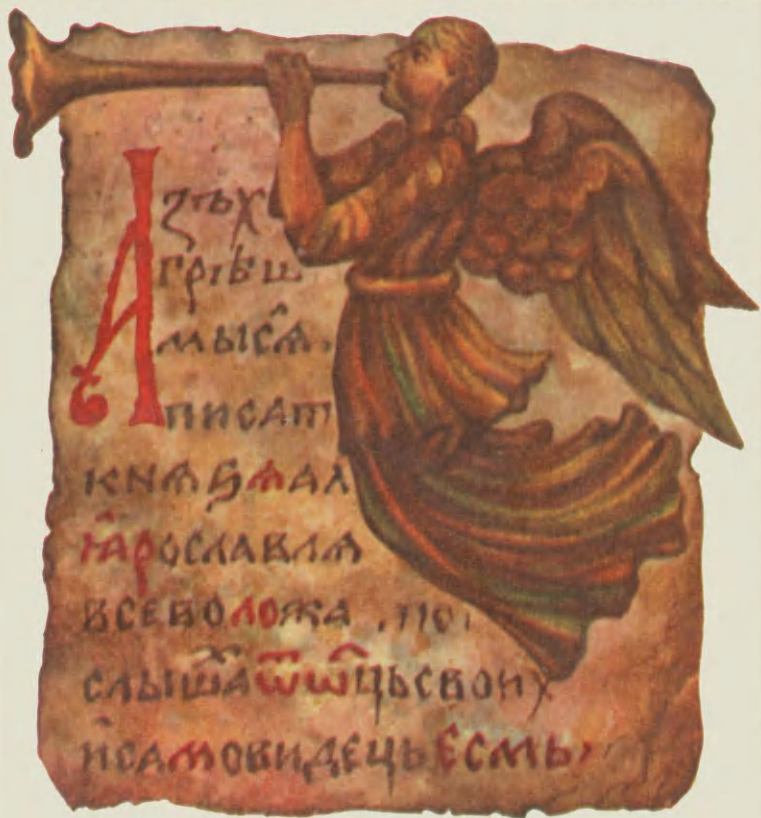 Азъ х
грѣш
мысѧ.
писат
кнѧѕѧ ал
ꙗрославлѧ
всеволожа . по
слышаѿ ѡц҃ь своих
и самовидець есмь